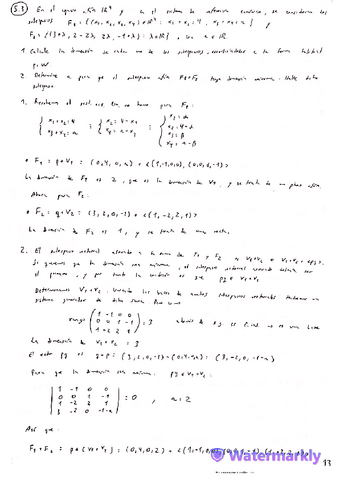 5.3 En el espacio afín ℝ⁴ y en el sistema de referencia canónico, se consideran los
subespacios F₁ = {(x₁, x₂, x₃, x₄) ∈ ℝ⁴ : x₁ + x₂ = 4, x₃ + x₄ = a} y
F₂ = {(3+λ, 2-2λ, 2λ, -1+λ) : λ ∈ ℝ}, con a ∈ ℝ.
1. Calcule la dimensión de cada uno de los subespacios, escribiéndolos a la forma habitual
p+W
2. Determine a para que el subespacio afín F1+F2 tenga dimensión mínima. Halle dicho
subespacio
1. Resolvemos el sist. ec. lin. no homog. para F₁:
{ x₁+x₂=4 ; { x₂=4-x₁ ; { x₁=α
x₃+x₄=a x₄=a-x₃ x₂=4-α
x₃=β
x₄=a-β
• F₁ = p+V₁ = (0,4,0,a) + L{(1,-1,0,0), (0,0,1,-1)}
La dimensión de F₁ es 2, que es la dimensión de V₁, y se trata de un plano afín.
Ahora para F₂:
• F₂ = q+V₂ = (3,2,0,-1) + L{(1,-2,2,1)}
La dimensión de F₂ es 1, y se trata de una recta.
2. El subespacio vectorial asociado a la suma de F₁ y F₂ es V₁+V₂ + <pq>.
Si queremos que la dimensión sea mínima, el subespacio vectorial asociado deberá ser
el pequeño, y por tanto la condición es que pq ∈ V₁+V₂
Determinemos V₁+V₂. Uniendo las bases de ambos subespacios vectoriales tendremos un
sistema generador de dicha suma. Pero como
rango ( 1 -1 0 0
0 0 1 -1
1 -2 2 1 ) = 3
La dimensión de V₁+V₂ = 3
El vector pq es q-p = (3,2,0,-1)-(0,4,0,a) = (3,-2,0,-1-a)
Para que la dimensión sea mínima: pq ∈ V₁+V₂:
| 1 -1 0 0 |
| 0 0 1 -1 |
| 1 -2 2 1 | = 0 , a=2
| 3 -2 0 -1-a |
Así que:
F₁+F₂ = p+(V₁+V₂) = (0,4,0,2) + L{(1,-1,0,0), (0,0,1,-1), (1,-2,2,1)}
Watermarkly
13